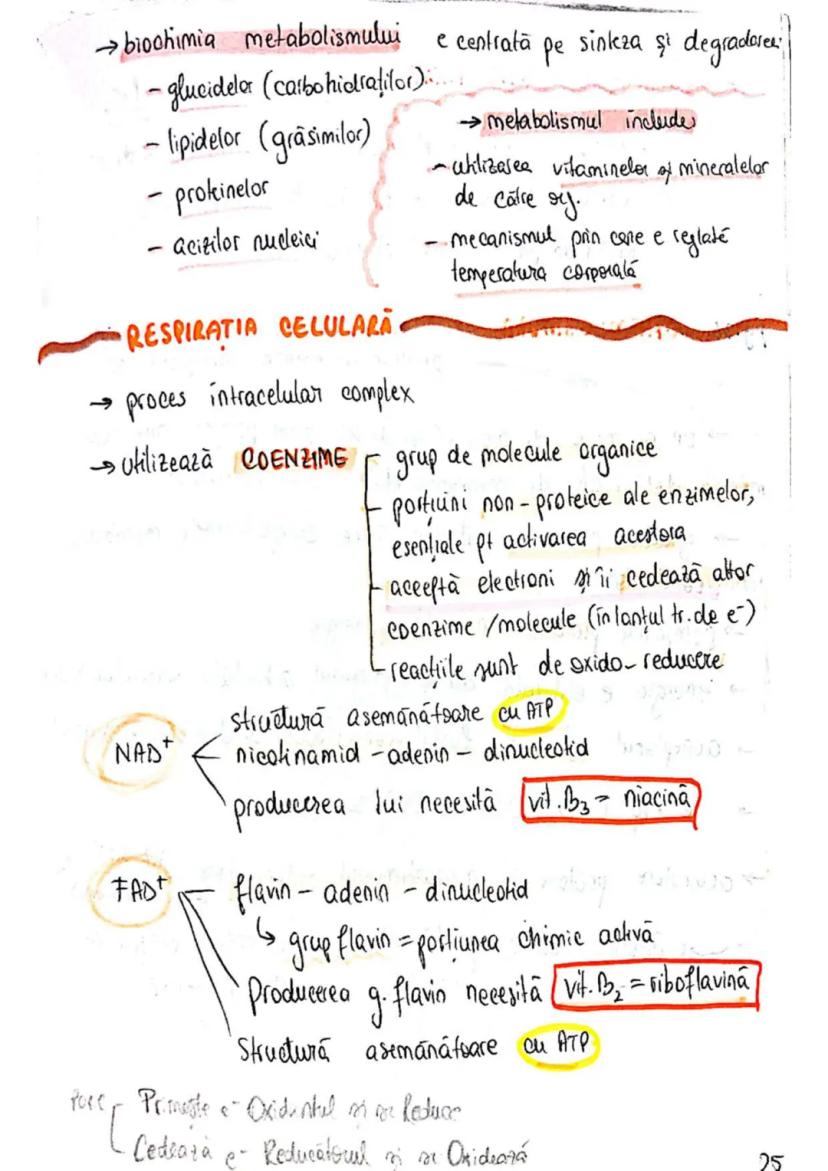 → biochimia metabolismului e centrată pe sinteza și degradarea:
- glucidelor (carbohidraților)
- lipidelor (grăsimilor)
- proteinelor
- acizilor nucleici
→ metabolismul include
- utilizarea vitaminelor și mineralelor
de către org.
- mecanismul prin care e reglată
temperatura corporală
RESPIRAȚIA CELULARĂ
→ proces intracelular complex
→ utilizează COENZIME
- grup de molecule organice
- porțiuni non-proteice ale enzimelor,
esențiale pt activarea acestora
- acceptă electroni și îi cedează altor
coenzime/molecule (în lanțul tr. de e⁻)
- reacțiile sunt de oxido-reducere
NAD⁺
structură asemănătoare cu ATP
nicotinamid - adenin - dinucleotid
producerea lui necesită vit. B₃ = niacină
FAD⁺
flavin - adenin - dinucleotid
↳ grup flavin = porțiunea chimic activă
Producerea g. flavin necesită vit. B₂ = riboflavină
Structură asemănătoare cu ATP
Primește e⁻ Oxidantul și se Reduce
Cedează e⁻ Reducătorul și se Oxidează
25